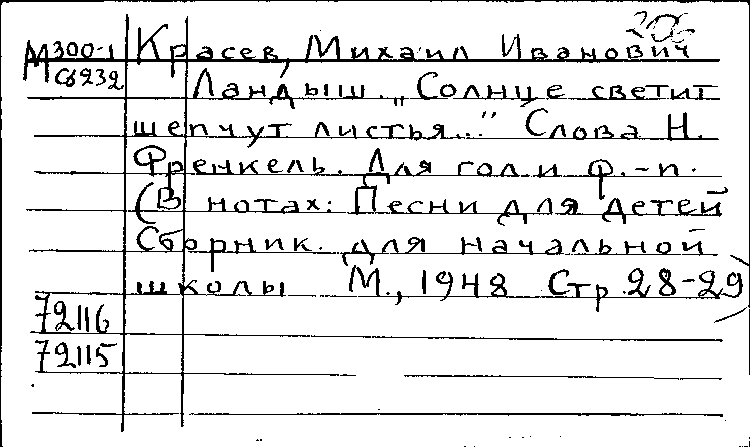 206
М300-1 Красев, Михаил Иванович
Сб232 Ландыш. „Солнце светит
шепчут листья..." Слова Н.
Френкель. Для гол. и ф.-п.
(В нотах: Песни для детей
Сборник. для начальной
школы М., 1948 Стр 28-29)
72116
72115